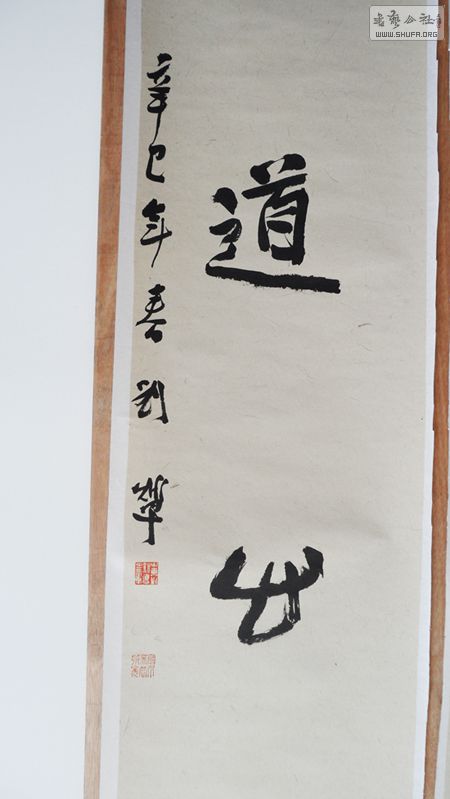 道
辛巳年春刘烨
書藝公社
WWW.SHUFA.ORG